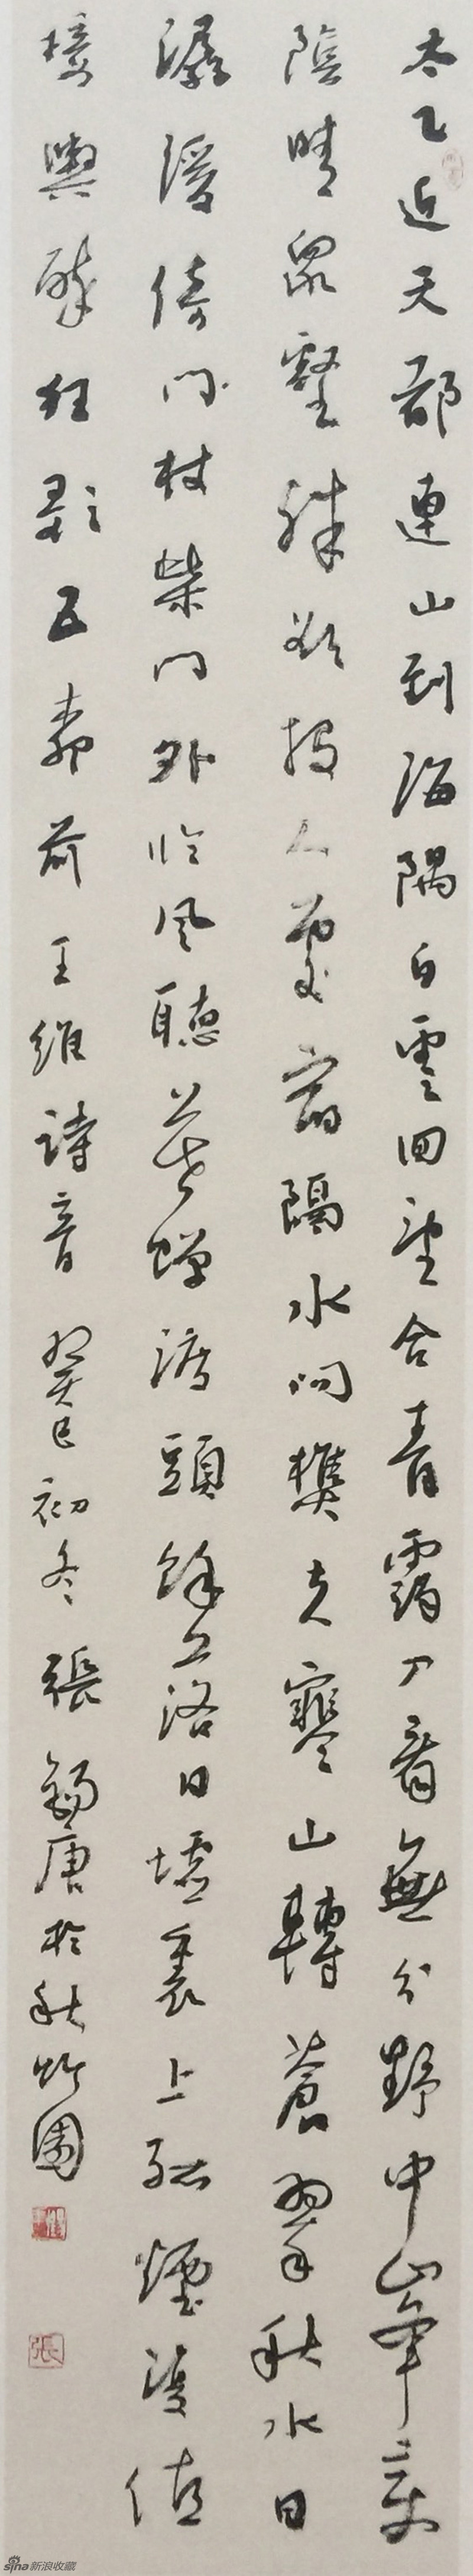 太乙近天都連山到海隅白雲回望合青靄入看無分野中峯變
陰晴眾壑殊欲投人處宿隔水問樵夫寒山轉蒼翠秋水日
潺湲倚門杖柴門外臨風聽暮蟬渡頭餘落日墟裏上孤煙復值
接輿醉狂歌五柳前王維詩音癸巳初冬張錫唐於秋竹圃
張
sina新浪收藏